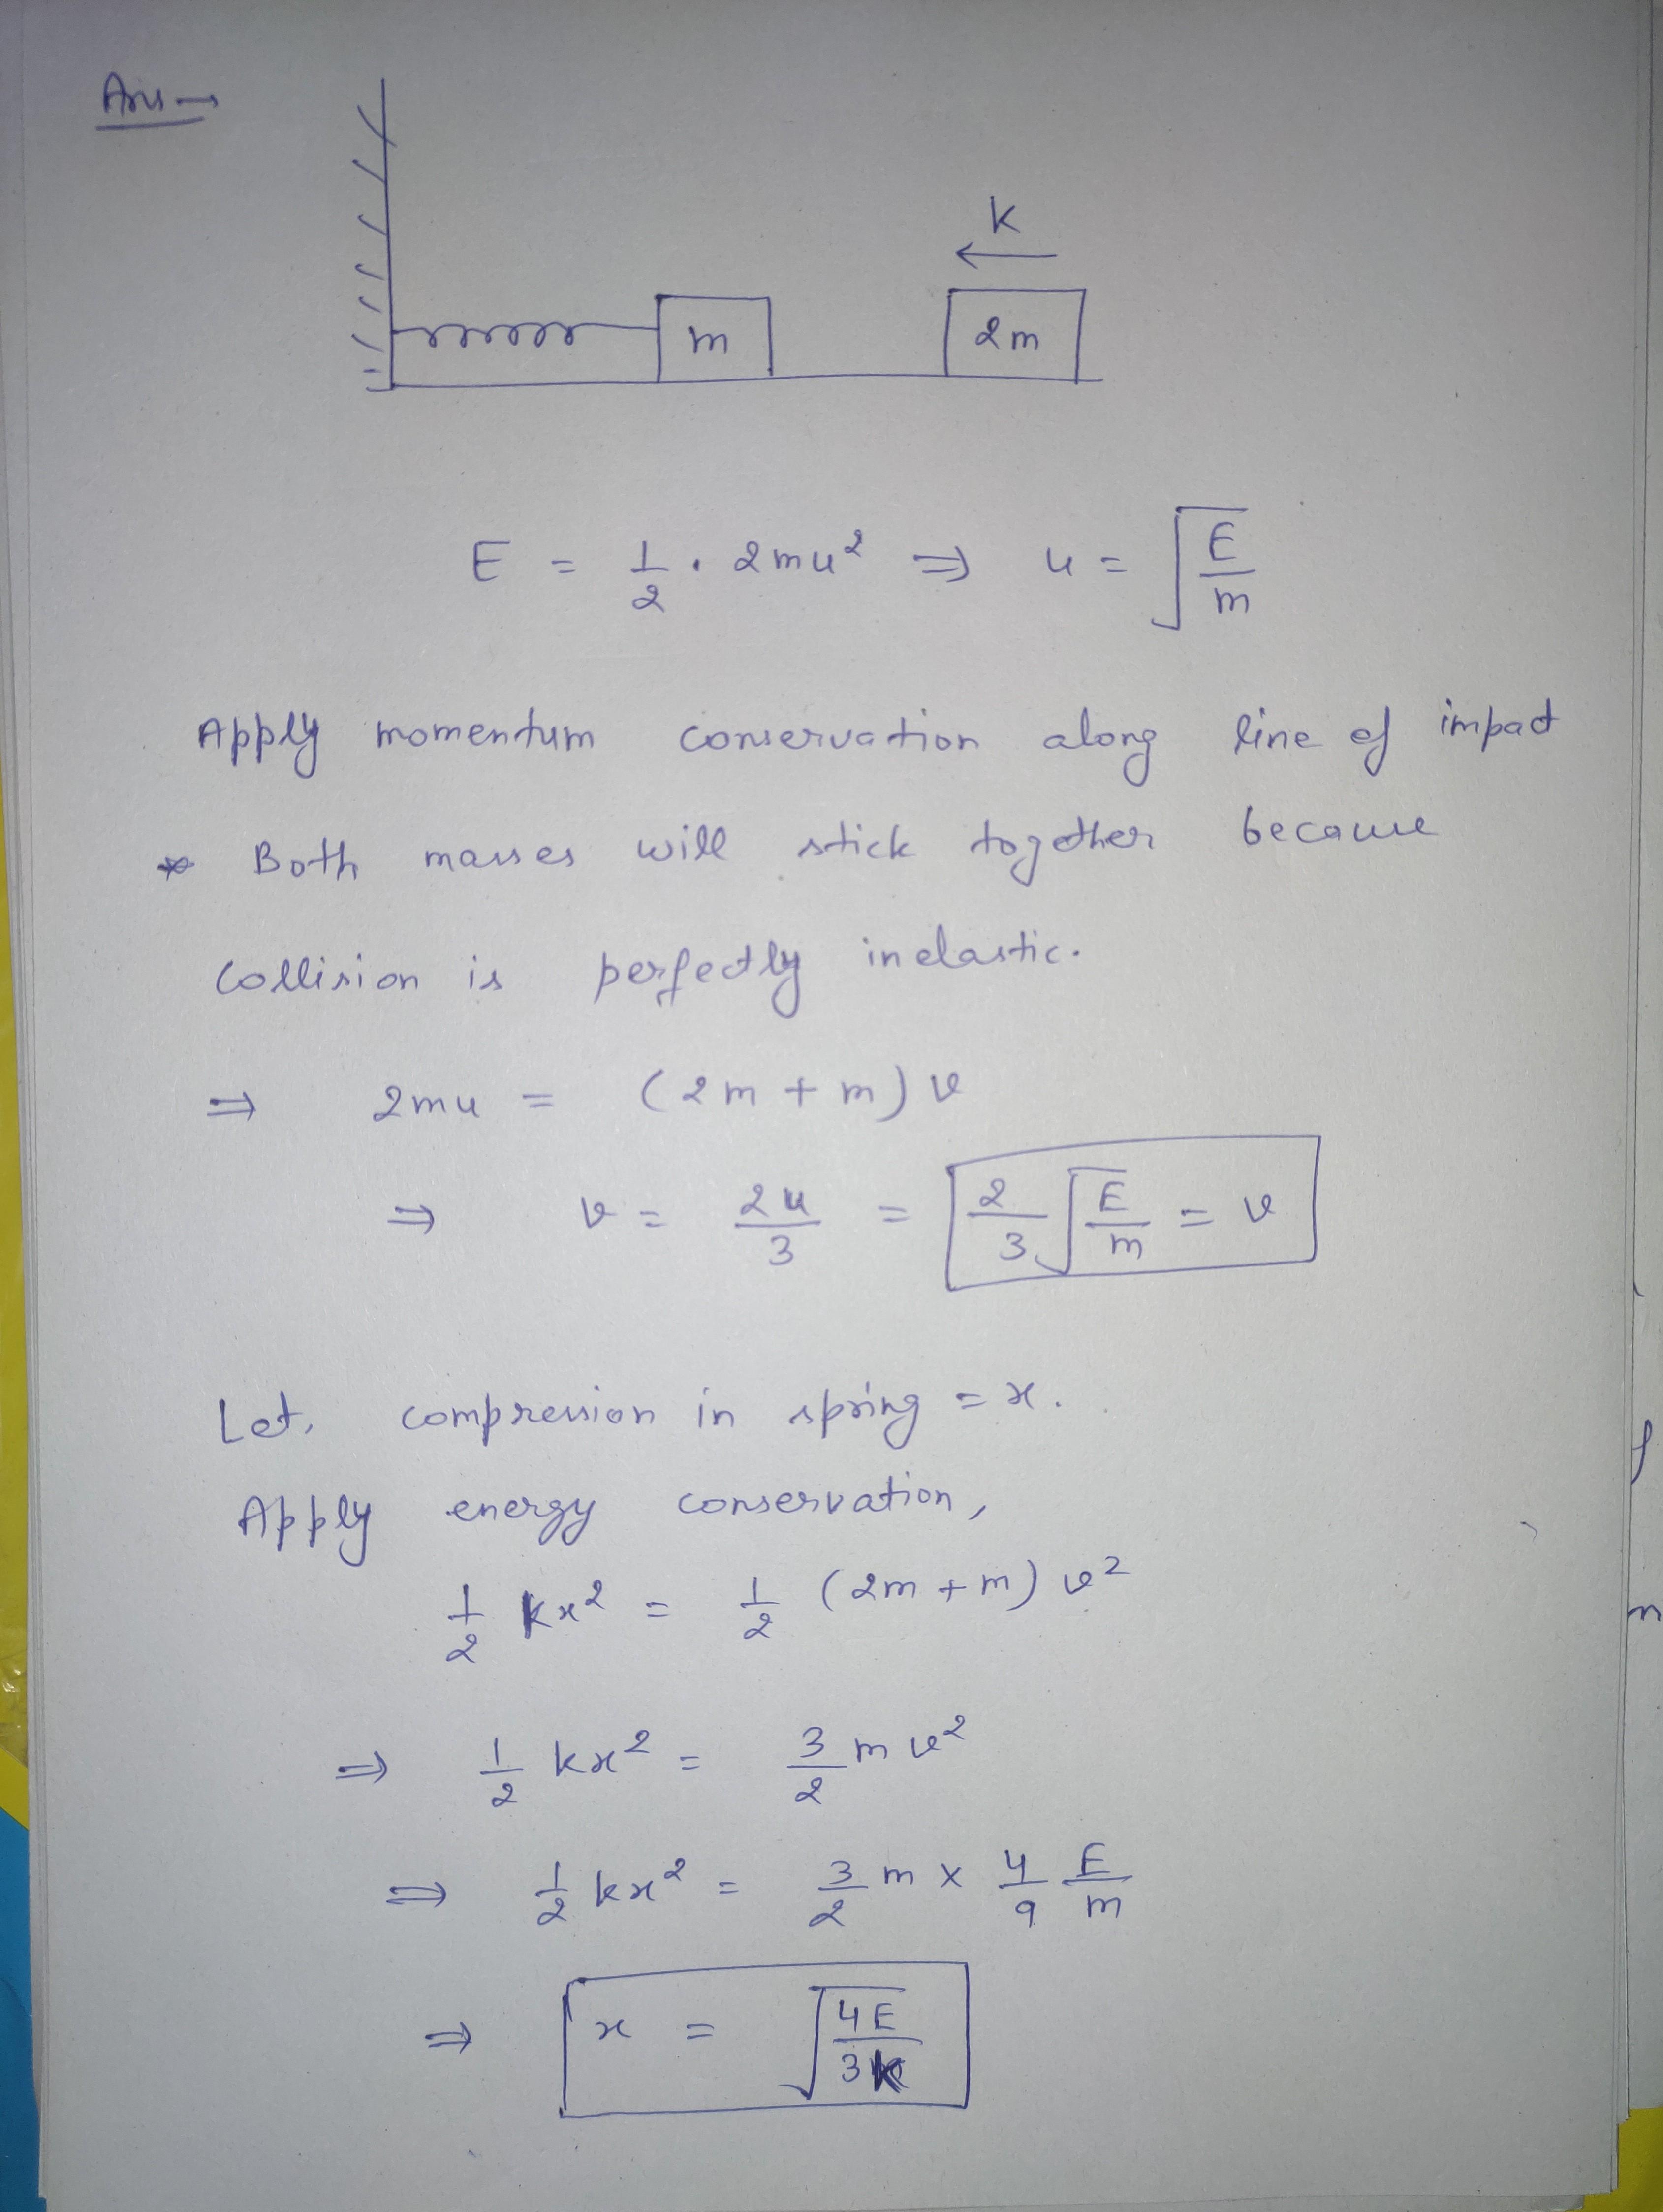 Ans →
K
m
2m
E = 1/2 . 2mu² ⇒ u = √(E/m)
Apply momentum conservation along line of impact
* Both masses will stick together because
Collision is perfectly inelastic.
⇒ 2mu = (2m + m) v
⇒ v = 2u/3 = 2/3 √(E/m) = v
Let, compression in spring = x.
Apply energy conservation,
1/2 kx² = 1/2 (2m + m) v²
⇒ 1/2 kx² = 3/2 m v²
⇒ 1/2 kx² = 3/2 m × 4/9 E/m
⇒ x = √(4E/3K)